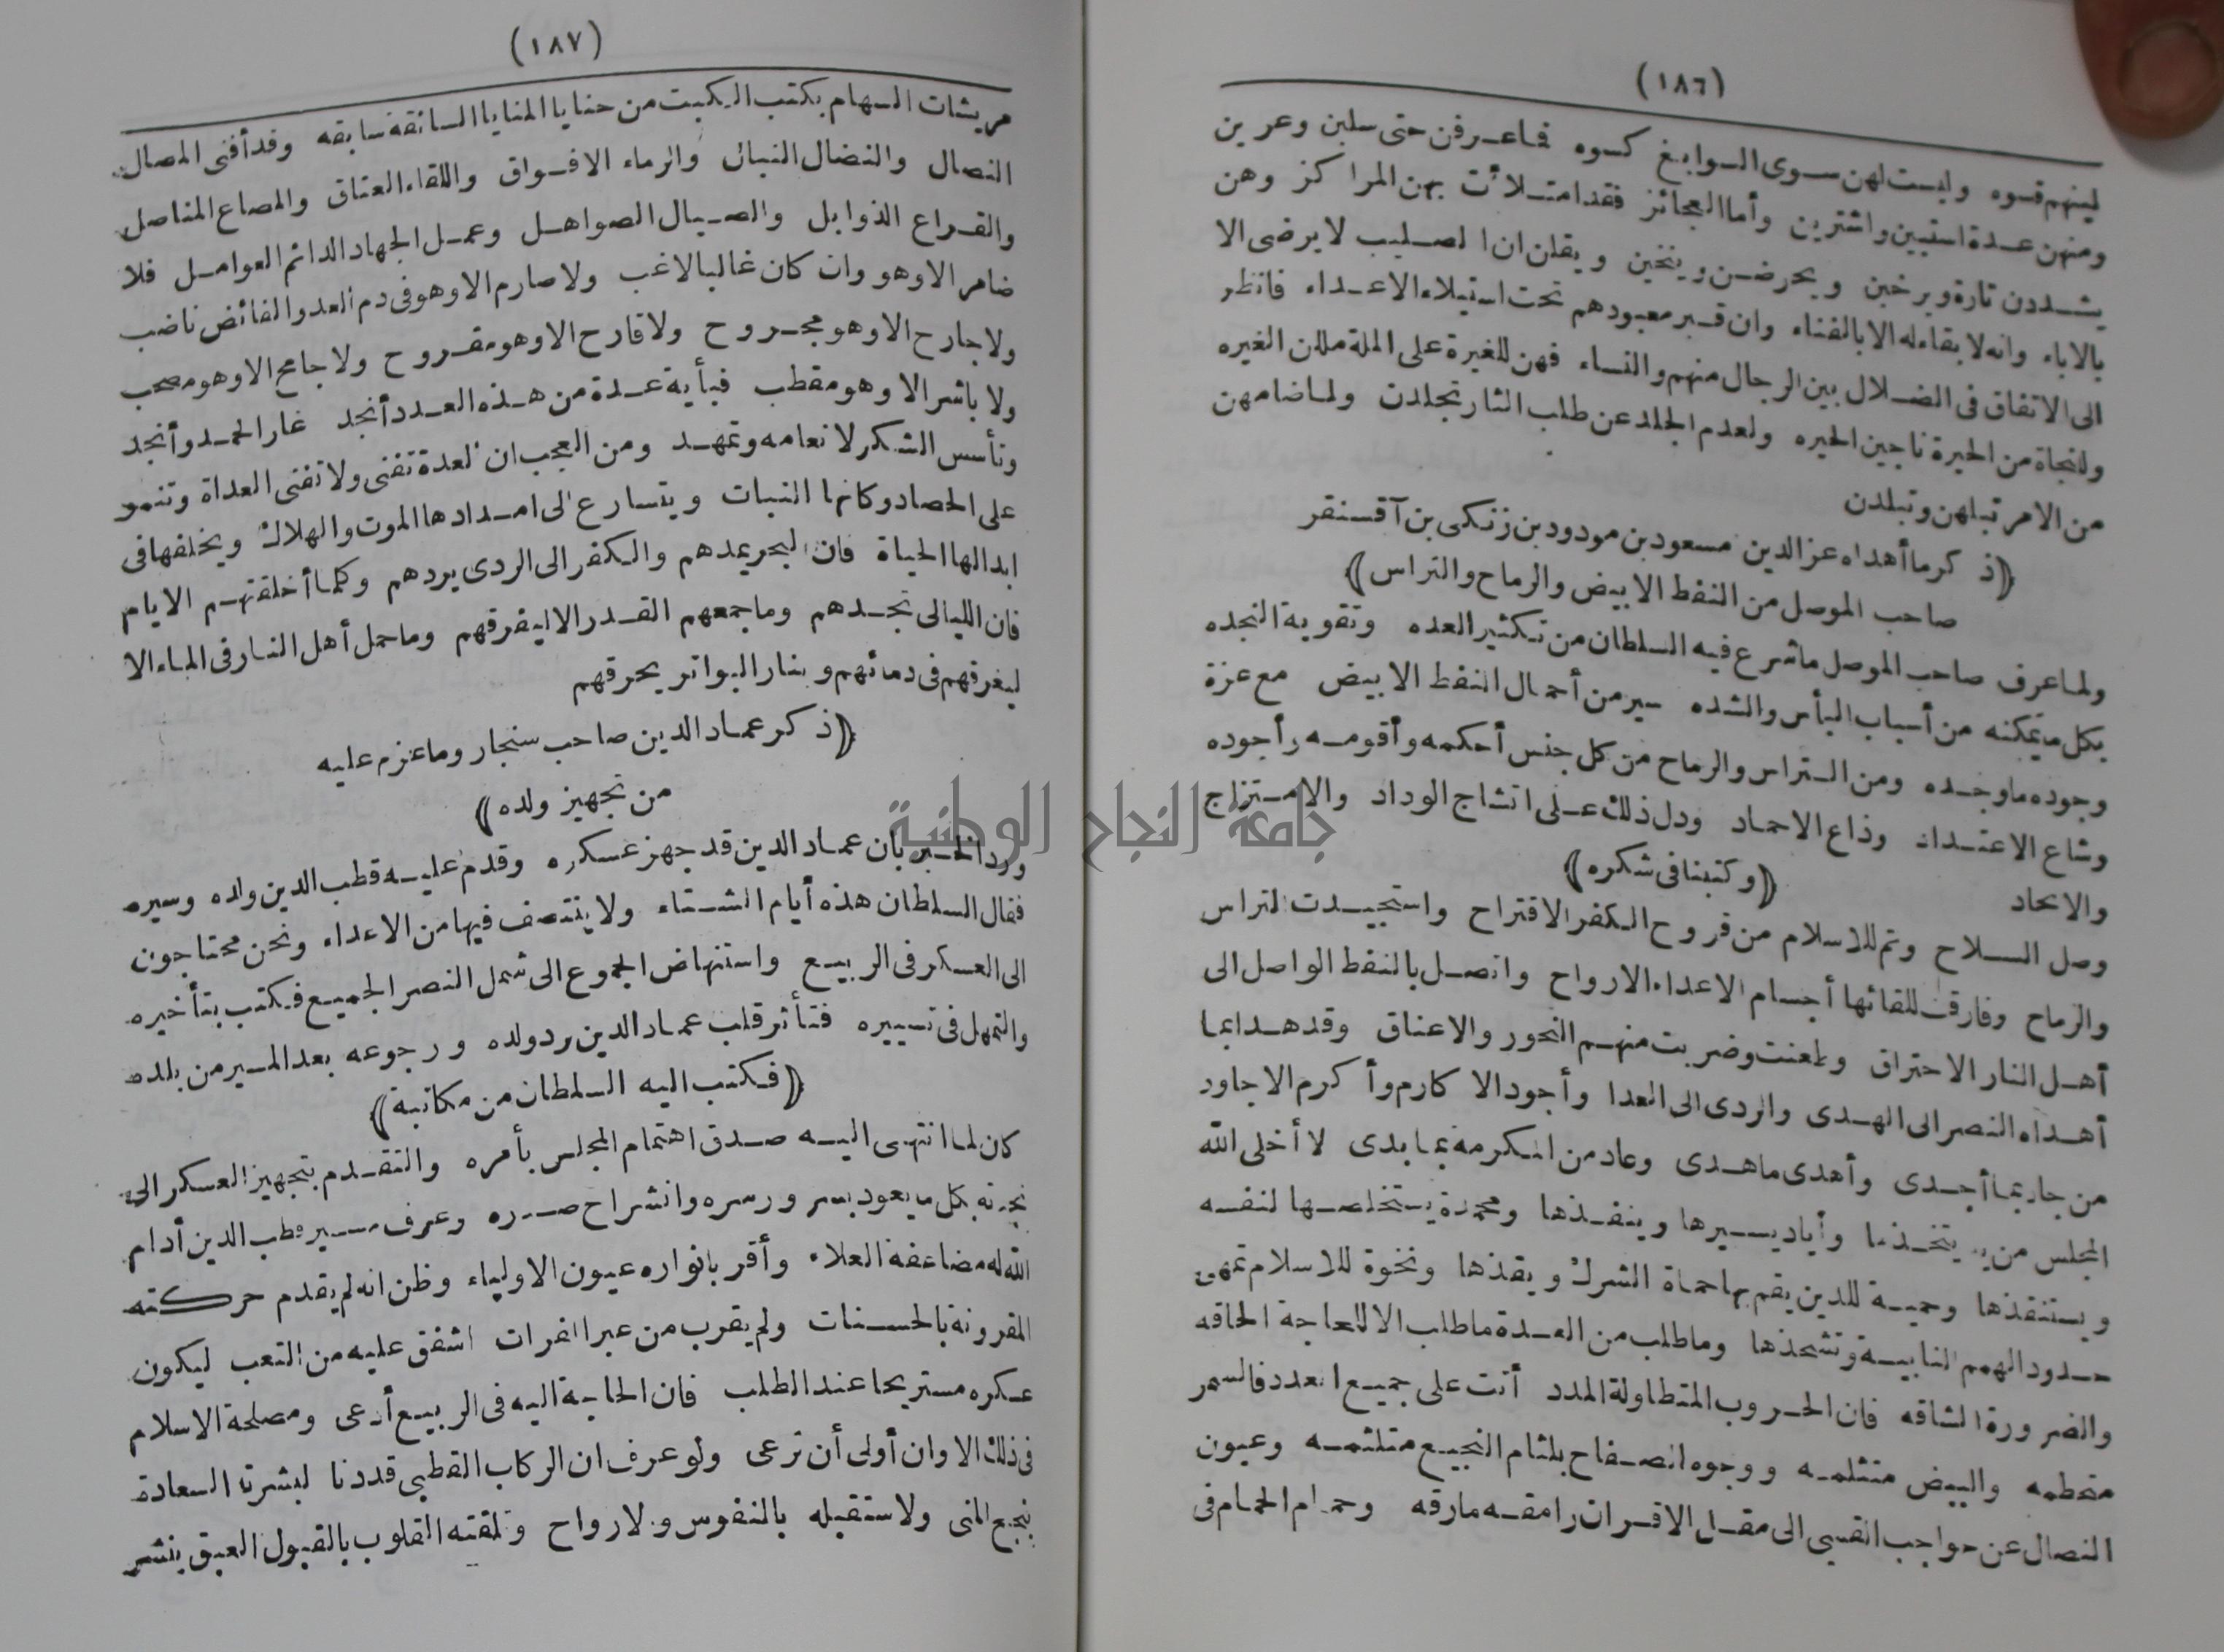 (١٨٦)
لينهم قسوه وليست لهن سوى السوابغ كسوه فماعرفن حتى سلبن وعرين
ومنهن عدة استبين واشترين وأما العجائز فقد امتلأت بهن المراكز وهن
يشددن تارة ويرخين ويحرضن وينخين ويقلن ان الصليب لا يرضى الا
بالاباء وانه لا بقاء له الا بالفناء وان قبر معبودهم تحت استيلاء الاعداء فانظر
الى الاتفاق فى الضلال بين الرجال منهم والنساء فهن للغيرة على الملة مللن الغيره
وللنجاة من الحيرة ناجين الحيره ولعدم الجلد عن طلب الثار تجلدن ولما ضامهن
من الامر تبلهن وتبلدن
﴿ذكر ما أهداه عز الدين مسعود بن مودود بن زنكى بن آقسنقر
صاحب الموصل من النفط الابيض والرماح والتراس﴾
ولما عرف صاحب الموصل ما شرع فيه السلطان من تكثير العده وتقوية النجده
بكل ما يمكنه من أسباب البأس والشده سير من أحمال النفط الابيض مع عزة
وجوده ما وجده ومن التراس والرماح من كل جنس أحكمه وأقومه وأجوده
وشاع الاعتداد وذاع الاحماد ودل ذلك على انتشاج الوداد والامتزاج
والاتحاد
﴿وكتبنا فى شكره﴾
وصل السلاح وتم للاسلام من قروح الكفر الاقتراح واستجيدت التراس
والرماح وفارقت للقائها أجسام الاعداء الارواح واتصل بالنفط الواصل الى
أهل النار الاحتراق وطعنت وضربت منهم النحور والاعناق وقد هدا بما
أهداه النصر الى الهدى والردى الى العدا وأجود الاكارم وأكرم الاجاود
من جاد بما أجدى وأهدى ما هدى وعاد من المكرمة بما بدى لا أخلى الله
المجلس من يد يتخذها وأياد يسيرها وينفذها ومحمدة يستخلصها لنفسه
ويستنقذها وحمية للدين يقم بها حماة الشرك ويقذها ونخوة للاسلام تمهى
حدود الهمم النابية وتشحذها وما طلب من العدة ما طلب الا للحاجة الحاقه
والضرورة الشاقه فان الحروب المتطاولة المدد أتت على جميع العدد فالسمر
متحطمه والبيض متثلمه ووجوه الصفاح بلثام النجيع متلثمه وعيون
النصال عن حواجب القسى الى مقل الاقران رامقه مارقه وحمام الحمام فى
(١٨٧)
مريشات السهام بكتب الكبت من حنايا المنايا السائقة سابقه وقد أفنى المصال
النصال والنضال النبال والرماء الافواق واللقاء العتاق والمصاع المناصل
والقراع الذوابل والصيال الصواهل وعمل الجهاد الدائم العوامل فلا
ضامر الا وهو وان كان غالبا لاغب ولا صارم الا وهو فى دم العدو الفائض ناضب
ولا جارح الا وهو مجروح ولا قارح الا وهو مقروح ولا جامح الا وهو مصحب
ولا باشر الا وهو مقطب فبأية عدة من هذه العدد أنجد غار الحمد وأنجد
وتأسس الشكر لانعامه وتمهد ومن العجب ان العدة تفنى ولا تفنى العداة وتنمو
على الحصاد وكانها النبات ويتسارع الى امدادها الموت والهلاك ويخلفها فى
ابدالها الحياة فان البحر يمدهم والكفر الى الردى يردهم وكلما أخلقتهم الايام
فان الليالى تجدهم وما جمعهم القدر الا ليفرقهم وما حمل أهل النار فى الماء الا
ليغرقهم فى دمائهم وبنار البواتر يحرقهم
﴿ذكر عماد الدين صاحب سنجار وما عزم عليه
من تجهيز ولده﴾
ورد الخبر بان عماد الدين قد جهز عسكره وقدم عليه قطب الدين ولده وسيره
فقال السلطان هذه أيام الشتاء ولا ينتصف فيها من الاعداء ونحن محتاجون
الى العسكر فى الربيع واستنهاض الجموع الى شمل النصر الجميع فكتب بتأخيره
والتمهل فى تسييره فتأثر قلب عماد الدين برد ولده ورجوعه بعد المسير من بلده
﴿فكتب اليه السلطان من مكاتبة﴾
كان لما انتهى اليه صدق اهتمام المجلس بأمره والتقدم بتجهيز العسكر الى
نجدته بكل ما يعود بسروره وانشراح صدره وعرف مسير قطب الدين أدام
الله له مضاعفة العلاء وأقر بانواره عيون الاولياء وظن انه لم يقدم حركته
المقرونة بالحسنات ولم يقرب من عبر الفرات اشفق عليه من التعب ليكون
عسكره مستريحا عند الطلب فان الحاجة اليه فى الربيع أدعى ومصلحة الاسلام
فى ذلك الاوان أولى أن ترعى ولو عرف ان الركاب القطبى قد دنا لبشرته السعادة
بنجح المنى ولاستقبله بالنفوس والارواح وتلقته القلوب بالقبول العبق بنشر
جامعة النجاح الوطنية